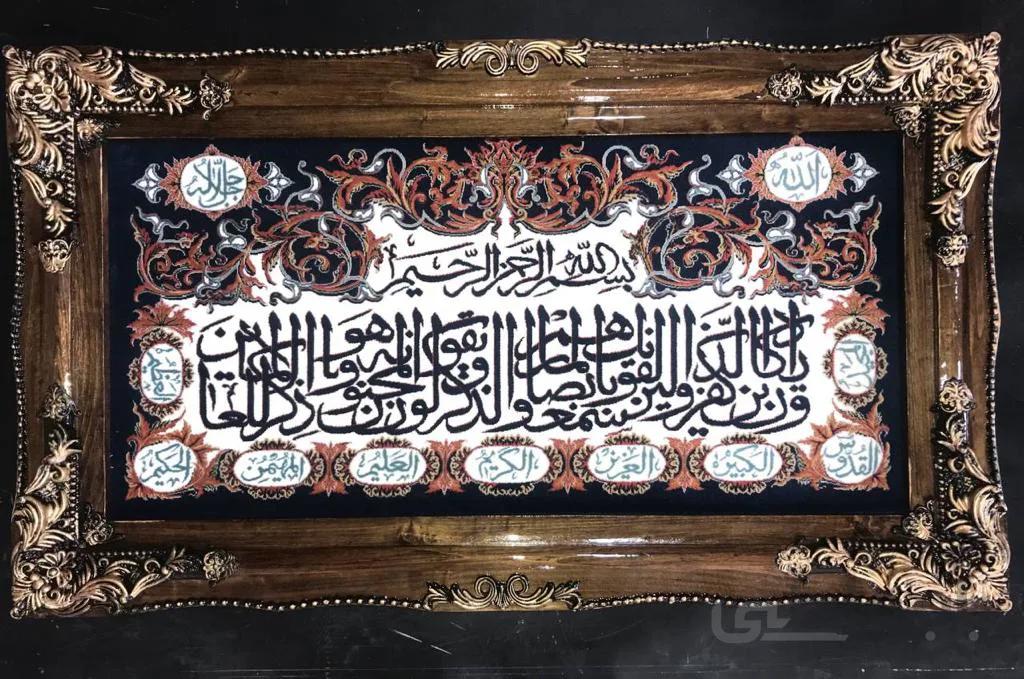 الله جل جلاله
بسم الله الرحمن الرحيم
وان يكاد الذين كفروا ليزلقونك بابصارهم لما سمعوا الذكر ويقولون انه لمجنون وما هو الا ذكر للعالمين
القدوس الكبير العزيز الكريم العليم المهيمن الحكيم